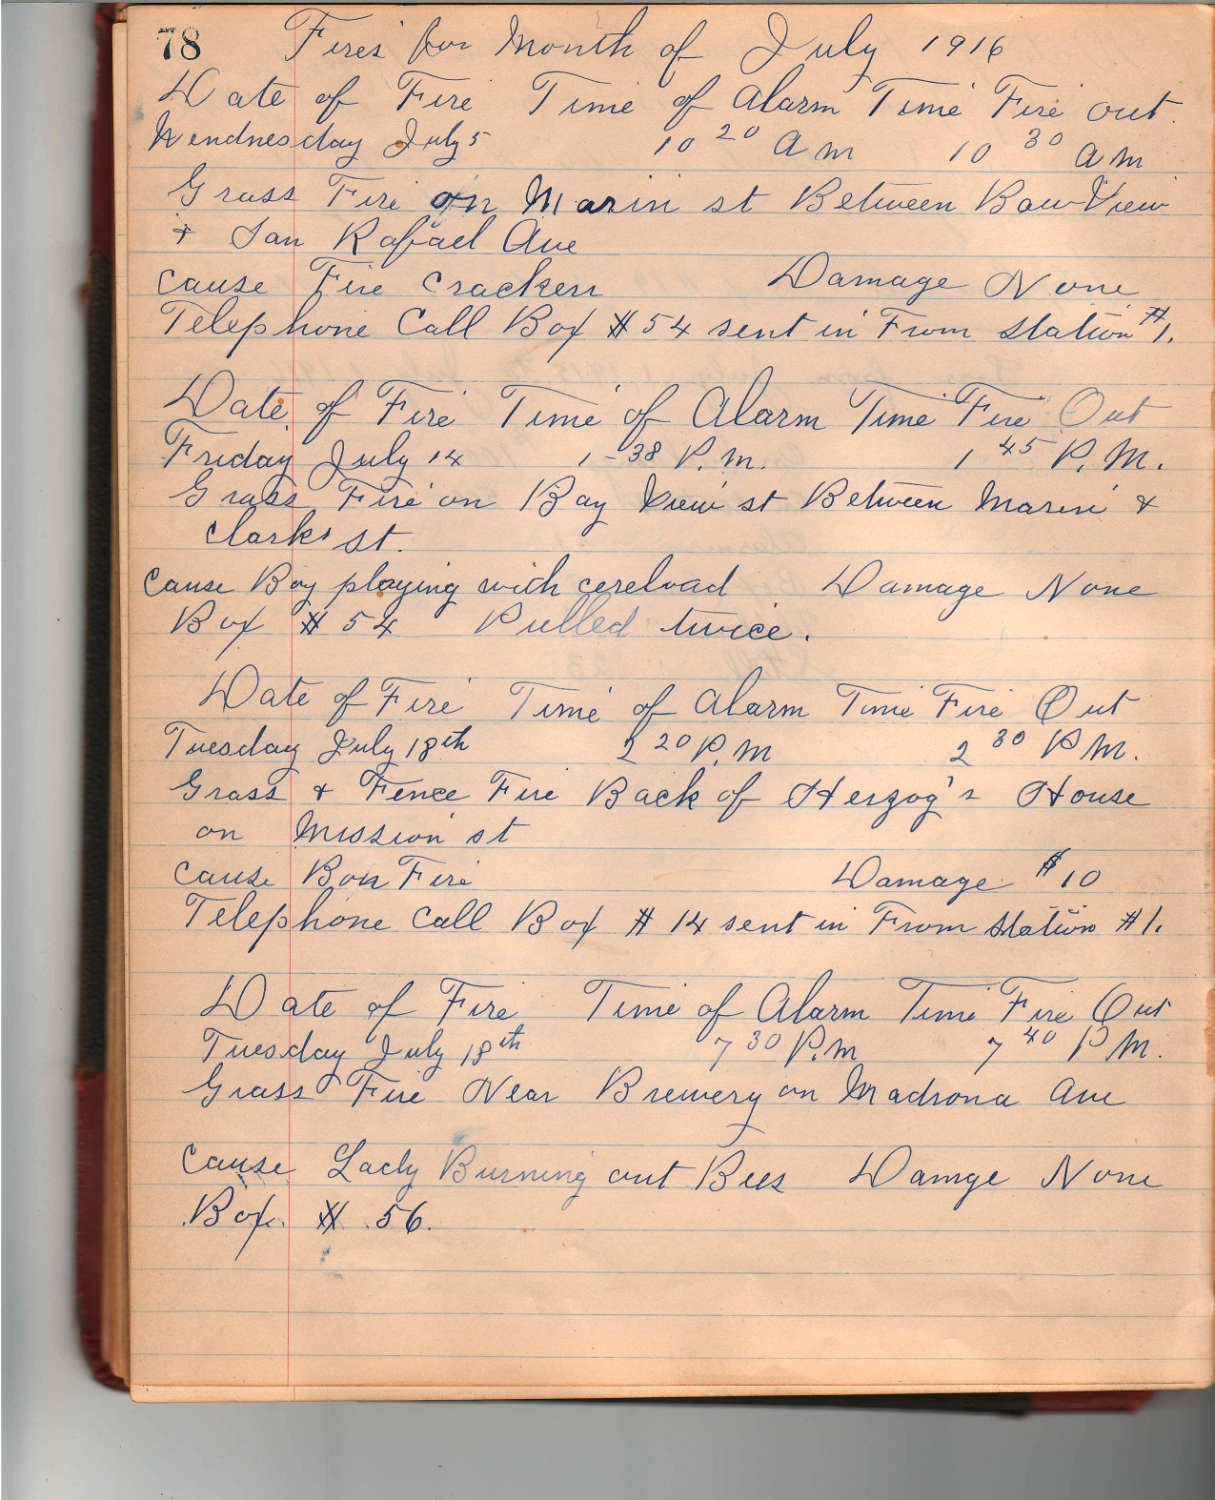 78 Fires for Month of July 1916
Date of Fire Time of Alarm Time Fire out.
Wendnesday July 5 10 20 am 10 30 am
Grass Fire on Marin st Between Bay View
+ San Rafael Ave
cause Fire Crackers Damage None
Telephone Call Box # 54 sent in From Station #1.
Date of Fire Time of Alarm Time Fire Out
Friday July 14 1-38 P.M. 1 45 P.M.
Grass Fire on Bay View st Between Marin +
Clark st.
Cause Boy playing with Damage None
Box # 54 Pulled twice.
Date of Fire Time of Alarm Time Fire Out
Tuesday July 18th 2 20 P.M 2 30 P M.
Grass + Fence Fire Back of Herzog's House
on Mission st
Cause Bon Fire Damage $10
Telephone Call Box # 14 sent in From Station #1.
Date of Fire Time of Alarm Time Fire Out
Tuesday July 18th 7 30 P.M 7 40 P M.
Grass Fire Near Brewery on Madrona Ave
Cause Lady Burning out Bees Damge None
Box. # 56.